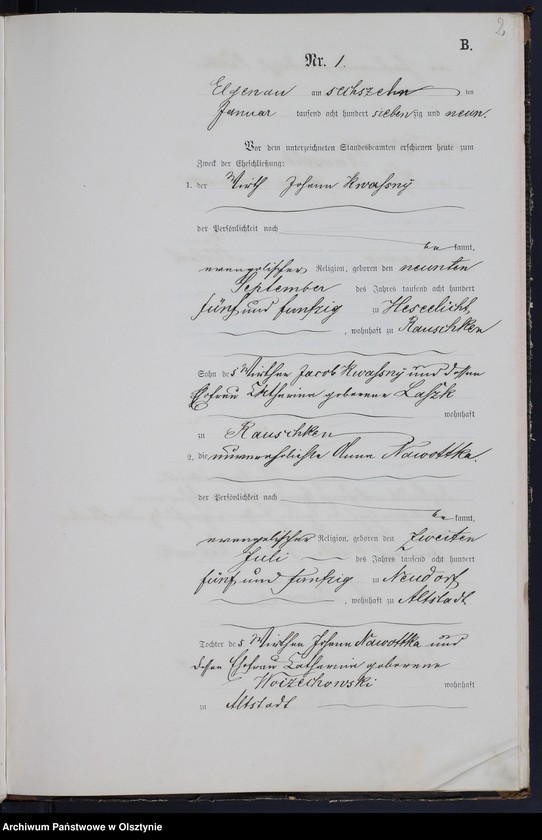 2
B.
Nr. 1.
Elgenau am sechszehn ten
Januar tausend acht hundert siebenzig und neun.
Vor dem unterzeichneten Standesbeamten erschienen heute zum
Zweck der Eheschließung:
1. der Wirth Johann Kwaßny
der Persönlichkeit nach
be kannt,
evangelischer Religion, geboren den neunten
September des Jahres tausend acht hundert
fünf und funfzig zu Heselicht,
, wohnhaft zu Rauschken
Sohn des Wirthen Jacob Kwaßny und dessen
Ehefrau Catharina geborene Laszk
wohnhaft
zu Rauschken
2. die unverehelichte Anna Nawottka.
der Persönlichkeit nach
be kannt,
evangelischer Religion, geboren den zweiten
Juli des Jahres tausend acht hundert
fünf und funfzig zu Neudorf
, wohnhaft zu Altstadt
Tochter des Wirthen Johann Nawottka und
dessen Ehefrau Catharina geborene
Woizechowski wohnhaft
zu Altstadt
Archiwum Państwowe w Olsztynie